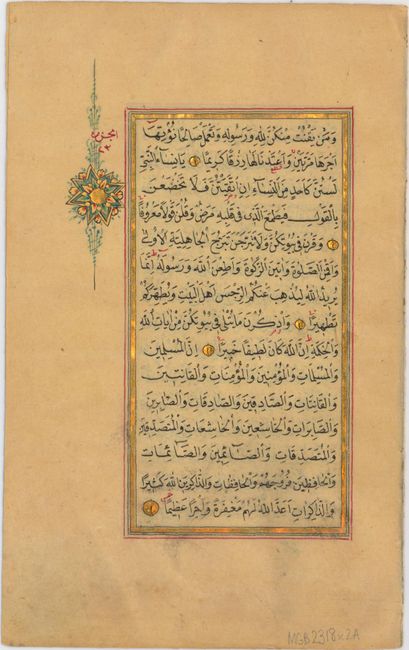 الجزء
٢٢
وَمَنْ يَقْنُتْ مِنْكُنَّ لِلّٰهِ وَرَسُولِهِ وَتَعْمَلْ صَالِحًا نُؤْتِهَا
اَجْرَهَا مَرَّتَيْنِ وَاَعْتَدْنَا لَهَا رِزْقًا كَرِيمًا يَانِسَاءَ النَّبِيِّ
لَسْتُنَّ كَاَحَدٍ مِنَ النِّسَاءِ اِنِ اتَّقَيْتُنَّ فَلَا تَخْضَعْنَ
بِالْقَوْلِ فَيَطْمَعَ الَّذِى فِى قَلْبِهِ مَرَضٌ وَقُلْنَ قَوْلًا مَعْرُوفًا
وَقَرْنَ فِى بُيُوتِكُنَّ وَلَا تَبَرَّجْنَ تَبَرُّجَ الْجَاهِلِيَّةِ الْاُولٰى
وَاَقِمْنَ الصَّلٰوةَ وَاٰتِينَ الزَّكٰوةَ وَاَطِعْنَ اللّٰهَ وَرَسُولَهُ اِنَّمَا
يُرِيدُ اللّٰهُ لِيُذْهِبَ عَنْكُمُ الرِّجْسَ اَهْلَ الْبَيْتِ وَيُطَهِّرَكُمْ
تَطْهِيرًا وَاذْكُرْنَ مَا يُتْلٰى فِى بُيُوتِكُنَّ مِنْ اٰيَاتِ اللّٰهِ
وَالْحِكْمَةِ اِنَّ اللّٰهَ كَانَ لَطِيفًا خَبِيرًا اِنَّ الْمُسْلِمِينَ
وَالْمُسْلِمَاتِ وَالْمُؤْمِنِينَ وَالْمُؤْمِنَاتِ وَالْقَانِتِينَ
وَالْقَانِتَاتِ وَالصَّادِقِينَ وَالصَّادِقَاتِ وَالصَّابِرِينَ
وَالصَّابِرَاتِ وَالْخَاشِعِينَ وَالْخَاشِعَاتِ وَالْمُتَصَدِّقِينَ
وَالْمُتَصَدِّقَاتِ وَالصَّائِمِينَ وَالصَّائِمَاتِ
وَالْحَافِظِينَ فُرُوجَهُمْ وَالْحَافِظَاتِ وَالذَّاكِرِينَ اللّٰهَ كَثِيرًا
وَالذَّاكِرَاتِ اَعَدَّ اللّٰهُ لَهُمْ مَغْفِرَةً وَاَجْرًا عَظِيمًا
MGB2318v.2A